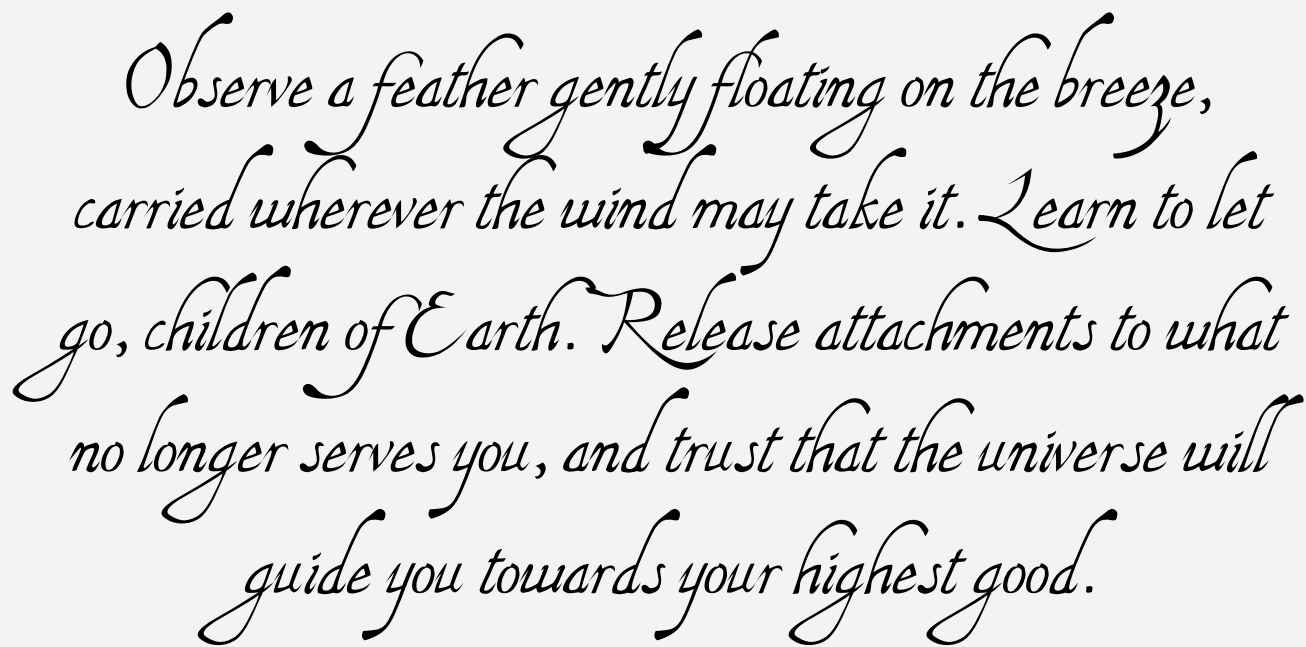 Observe a feather gently floating on the breeze,
carried wherever the wind may take it. Learn to let
go, children of Earth. Release attachments to what
no longer serves you, and trust that the universe will
guide you towards your highest good.